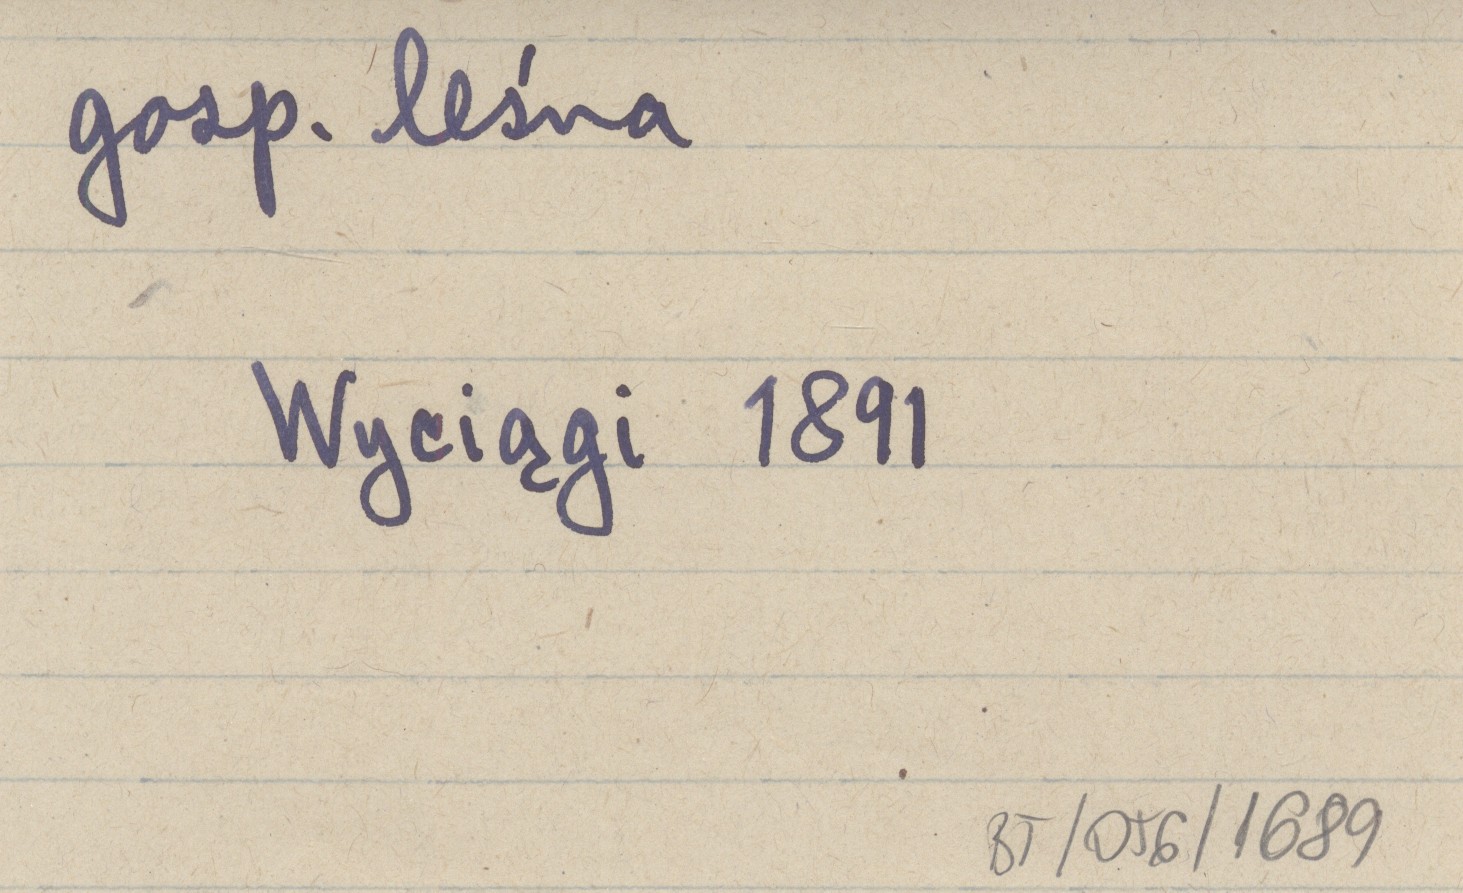 gosp. leśna
Wyciągi 1891
BT/DTG/1689